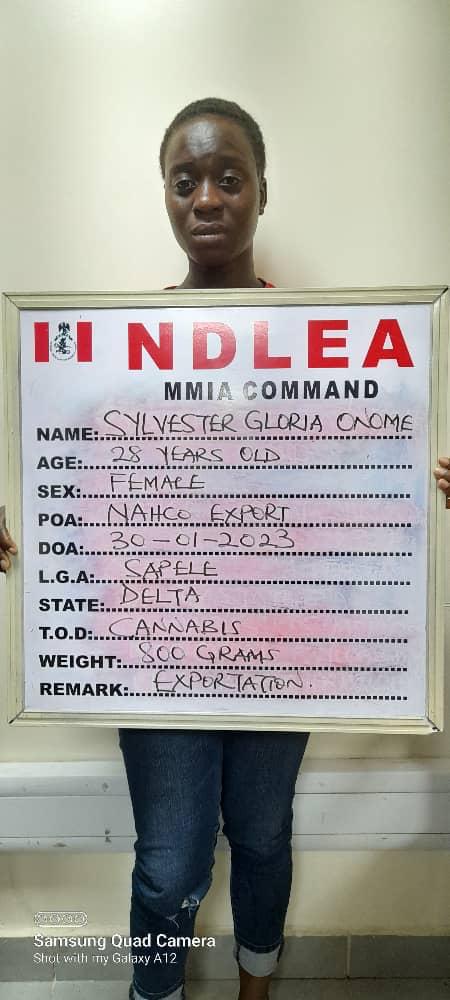 NDLEA
MMIA COMMAND
NAME: SYLVESTER GLORIA ONOME
AGE: 28 YEARS OLD
SEX: FEMALE
POA: NAHCO EXPORT
DOA: 30-01-2023
L.G.A: SAPELE
STATE: DELTA
T.O.D: CANNABIS
WEIGHT: 800 GRAMS
REMARK: EXPORTATION.
Samsung Quad Camera
Shot with my Galaxy A12